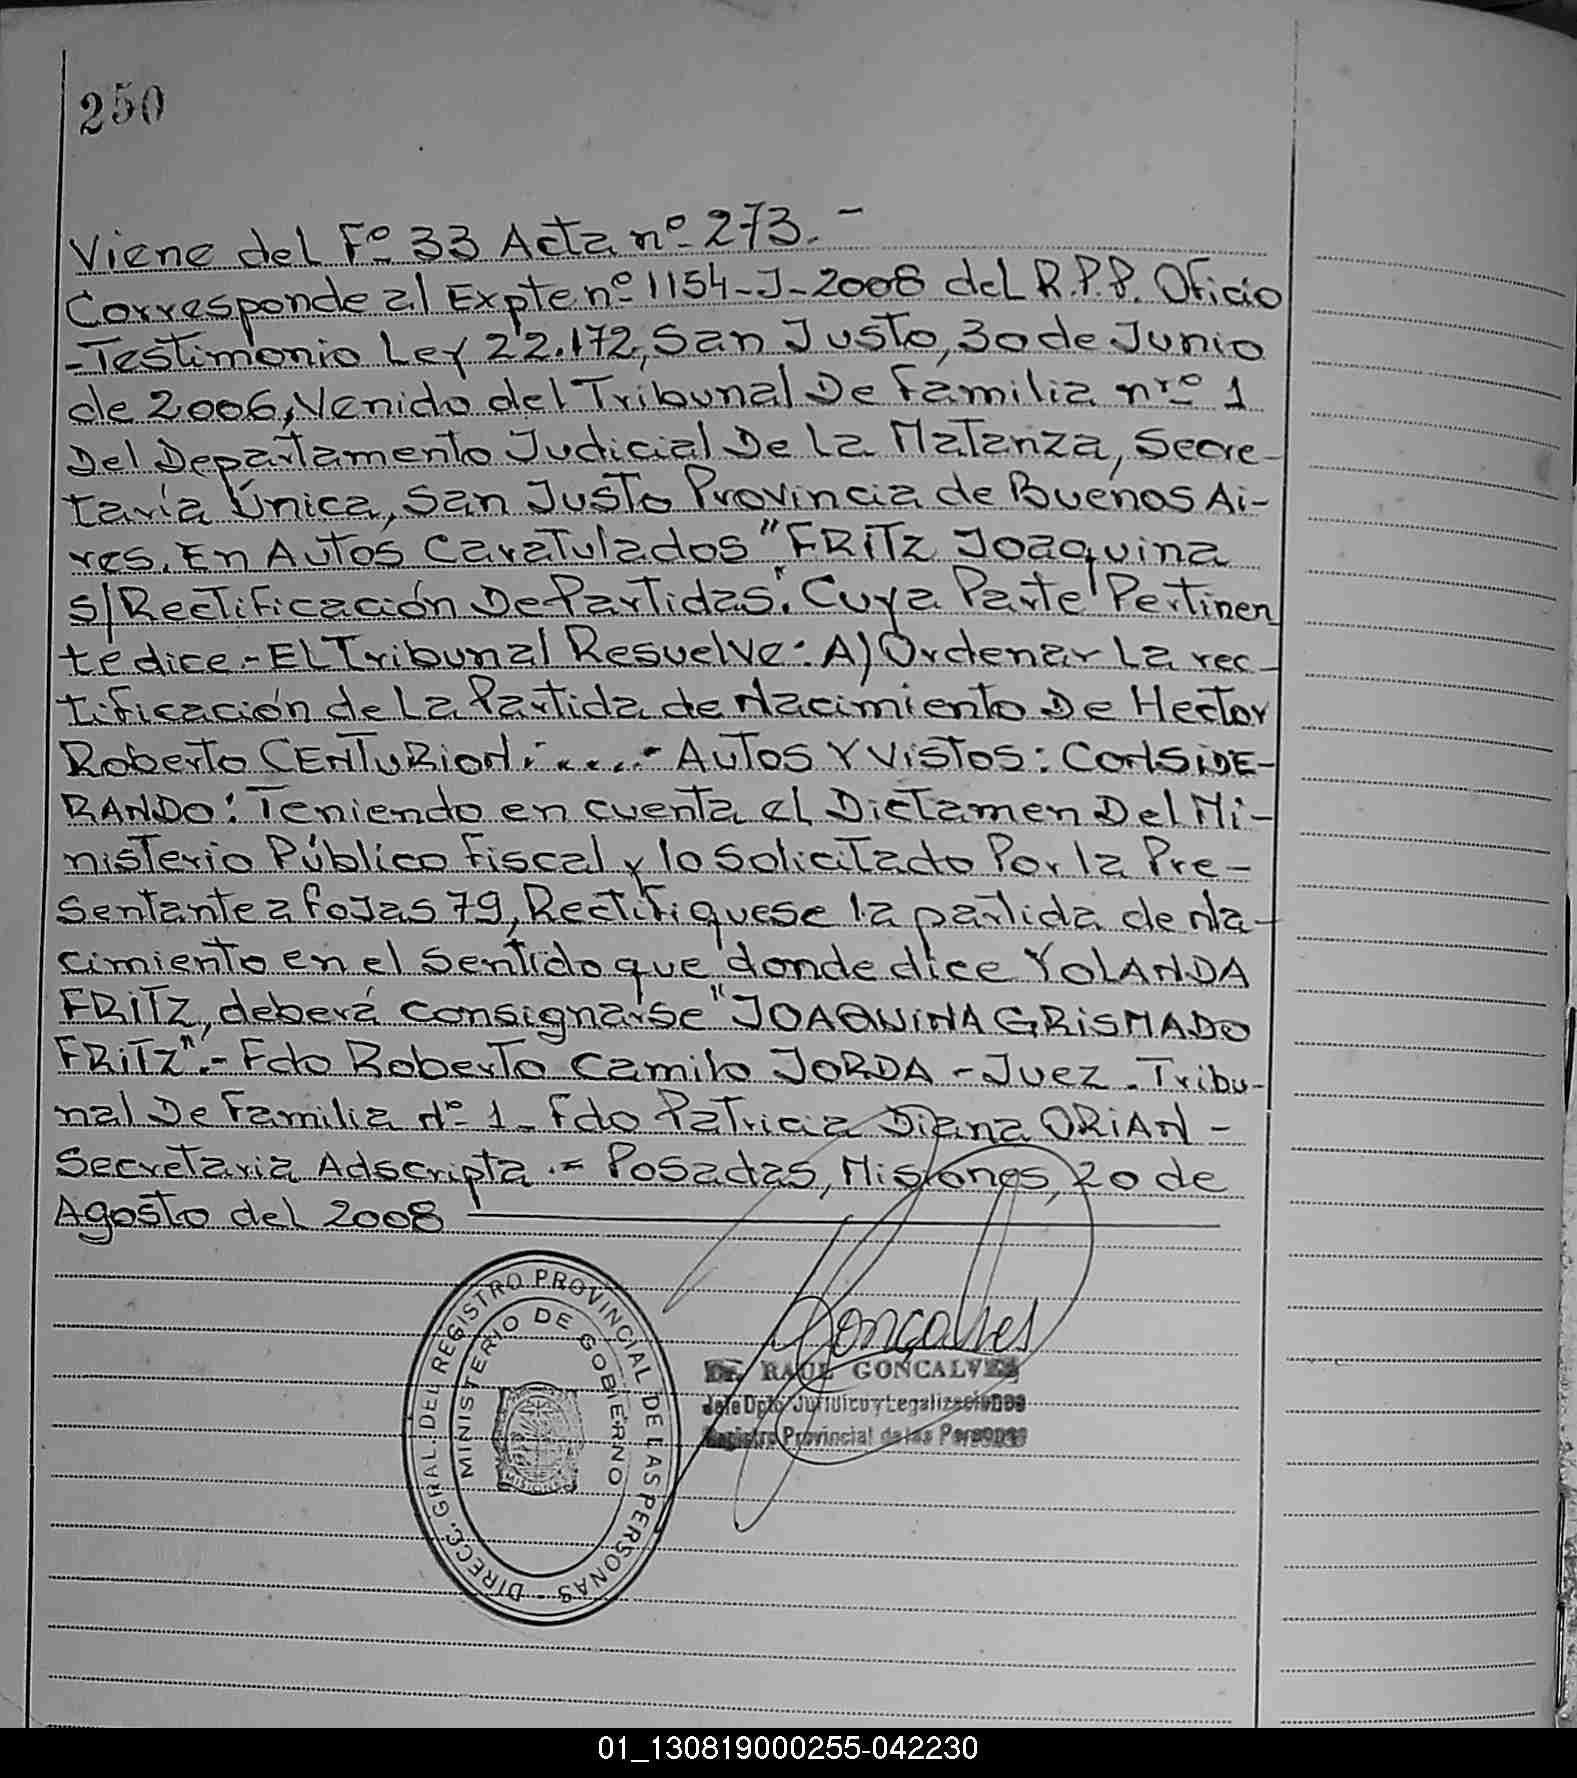 250
Viene del Fº 33 Acta nº 273.-
Corresponde al Expte nº 1154-J-2008 del R.P.P. Oficio
-Testimonio Ley 22.172, San Justo, 30 de Junio
de 2006, Venido del Tribunal De Familia nrº 1
Del Departamento Judicial De La Matanza, Secre-
taría Única, San Justo Provincia de Buenos Ai-
res. En Autos Caratulados "FRiTZ Joaquina
s/Rectificación De Partidas". Cuya Parte Pertinen
te dice - EL Tribunal Resuelve: A) Ordenar La rec-
tificación de La Partida de Nacimiento De Hector
Roberto CENTURiON: ....- Autos Y Vistos: CONSiDE-
RANDO: Teniendo en cuenta el Dictamen Del Mi-
nisterio Público Fiscal y lo solicitado Por la Pre-
sentante a fojas 79, Rectifiquese la partida de Na-
cimiento en el Sentido que donde dice YOLANDA
FRiTZ, deberá consignarse "JOAQUiNA GRiSMADO
FRiTZ".- Fdo Roberto Camilo JORDA - Juez - Tribu-
nal De Familia Nº 1 - Fdo Patricia Diana ORiAN -
Secretaria Adscripta .= Posadas, Misiones, 20 de
Agosto del 2008
DIRECC. GRAL. DEL REGISTRO PROVINCIAL DE LAS PERSONAS
MINISTERIO DE GOBIERNO
MISIONES
Goncalves
Dr. RAUL GONCALVES
Jefe Dpto Jurídico y Legalizaciones
Registro Provincial de las Personas
01_130819000255-042230